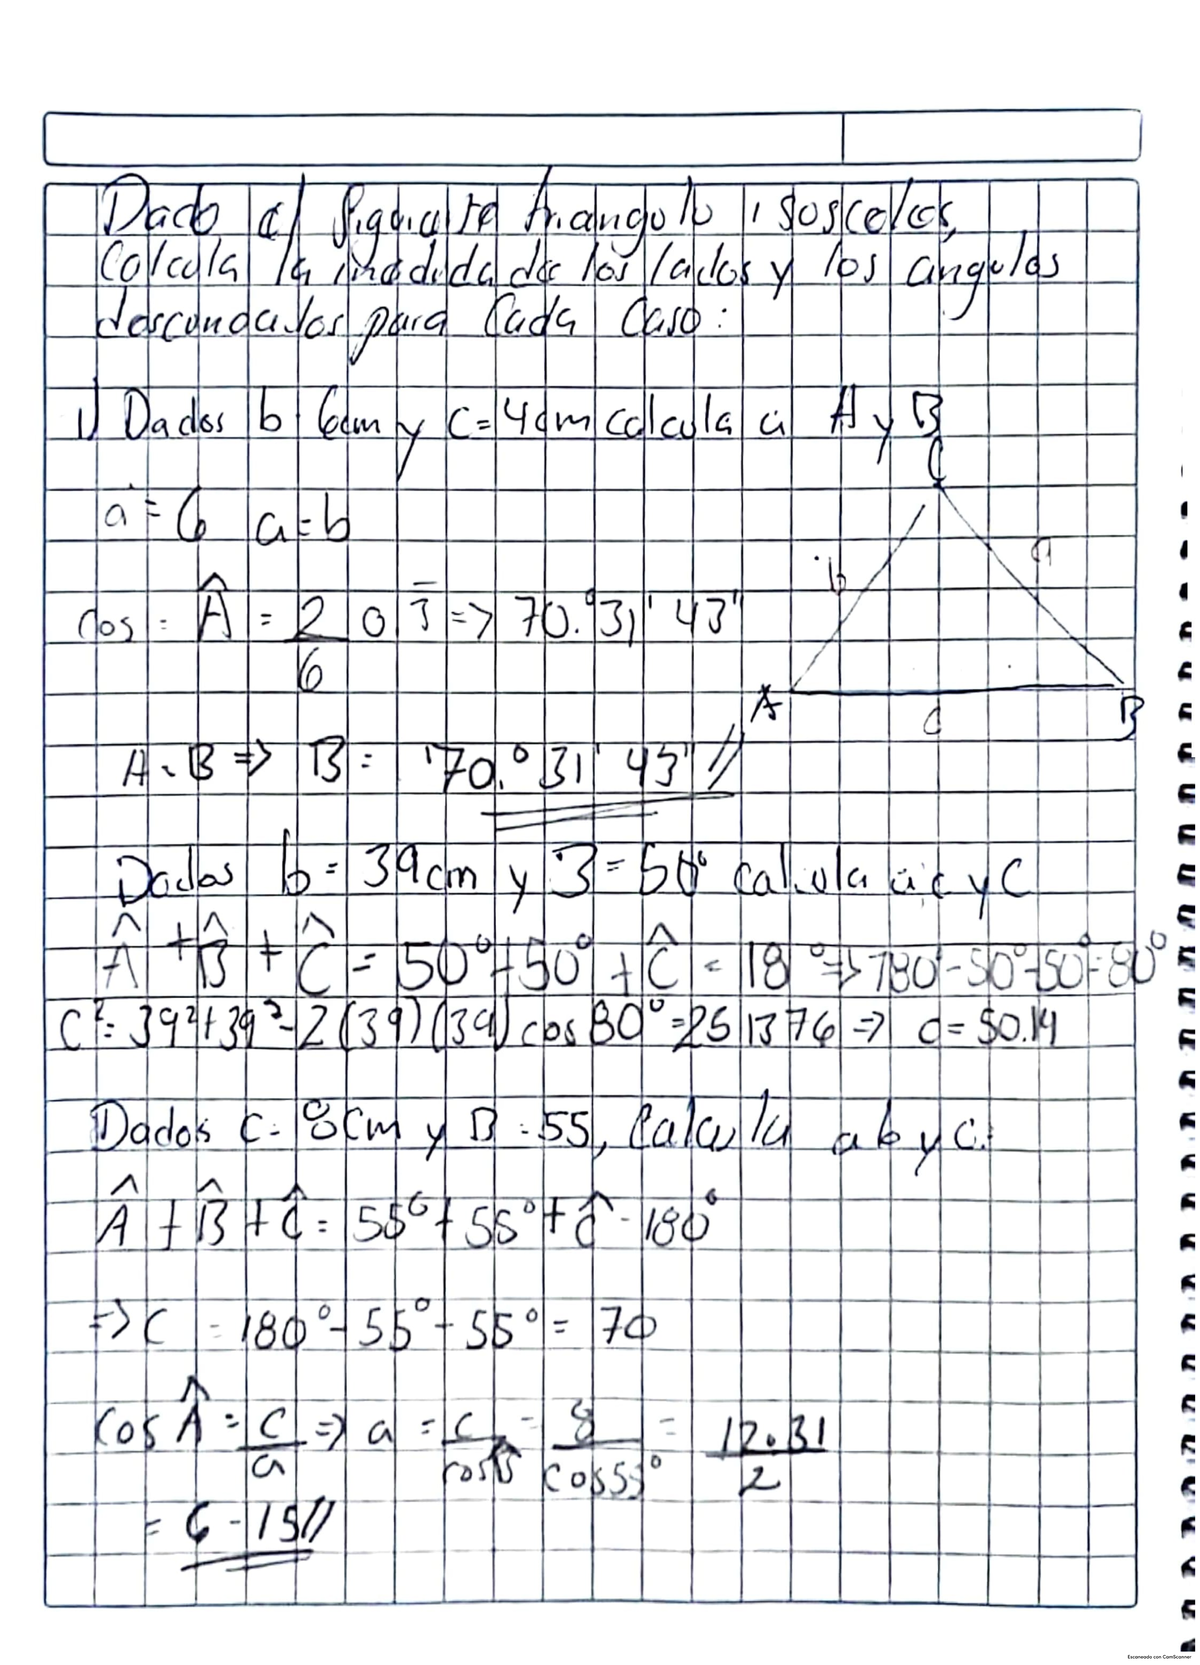 Dado el siguiente triangulo isosceles,
Calcula la medida de los lados y los angulos
desconocidos para Cada Caso:
1) Dados b 6cm y C=4cm calcula a A y B
C
a = 6 a=b
b a
cos = Â = 2/6 0 3̅ => 70.°31' 43"
A c B
A = B => B = 70.° 31' 43" //
Dados b = 39cm y B = 50° calcula a c y C
Â + B̂ + Ĉ = 50°+50° + Ĉ = 18 ° => 180°-50°-50°=80°
C²= 39²+39²-2(39)(39) cos 80°=251376 => c = 50.14
Dados C= 8cm y B = 55, Calcula a b y c.
Â + B̂ + Ĉ = 55°+ 55°+ Ĉ - 180°
=> C = 180°- 55°- 55° = 70
cos Â = c/a => a = c/cosÂ = 8/cos55° = 12.31/2
= 6-15//
Escaneado con CamScanner